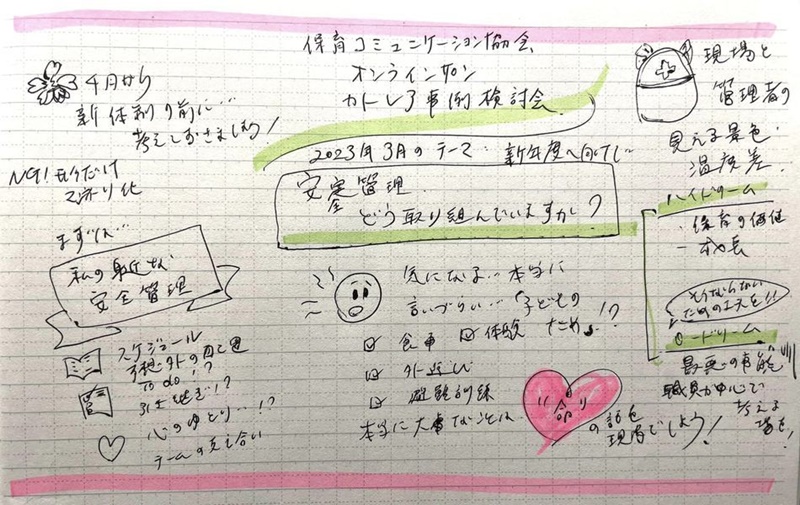 保育コミュニケーション協会
オンラインサロン
カトレア事例検討会
2023年3月のテーマ: 新年度へ向けて
安全管理
どう取り組んでいますか?
4月から
新体制の前に…
考えておきましょう!
NG! だけ
まずは…
私の身近な
安全管理
スケジュール
予想外の
To do!?
引き継ぎ!?
心のゆとり…!?
チームの支え合い
気になる…本当に
言いづらい…「子どもの
ため」!?
☑ 食事 ☑ 体験
☑ 外遊び
☑ 避難訓練
本当に大事なことは
"命"
の話を
現場でしよう!
現場と
管理者の
見える景色
温度差
ハイドリーム
・保育の価値
一 成長
そうならない
ための工夫を!!
ロードリーム
最悪の事態
職員が中心で
考える
場を!